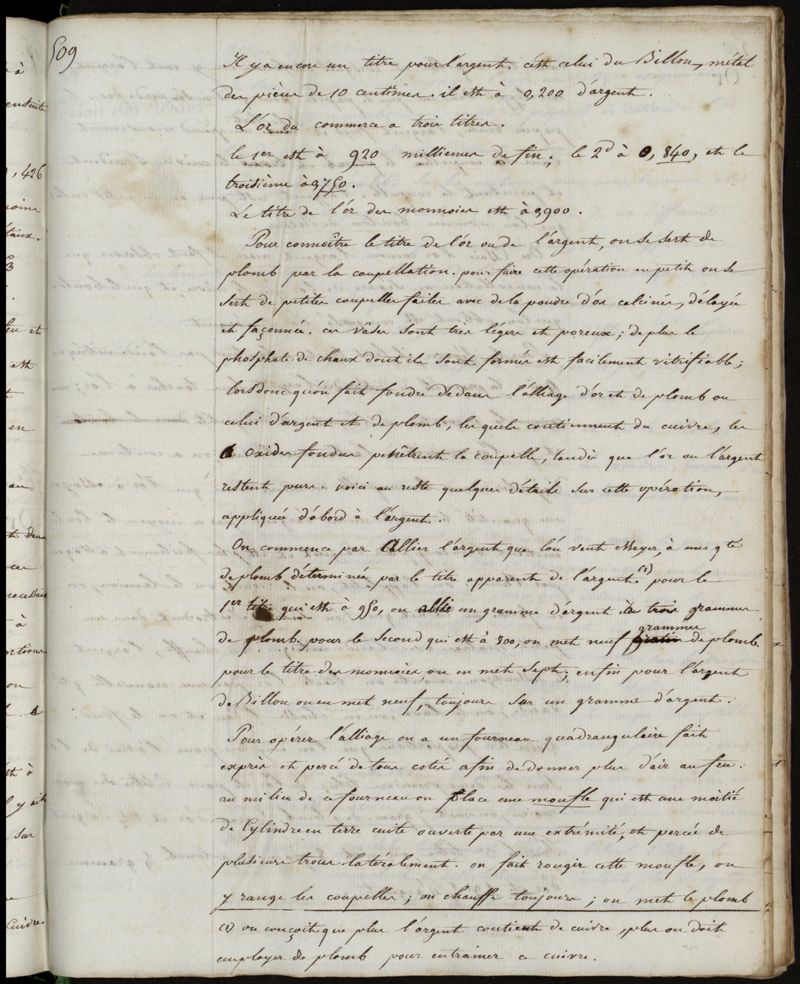 509
Il y a encore un titre pour l'argent. c'est celui du Billon, métal
des pièces de 10 centimes. il est à 0,200 d'argent.
L'or du commerce a trois titres.
le 1er est à 920 millièmes de fin; le 2d à 0,840, et le
troisième à 0,750.
Le titre de l'or des monnoies est à 0,900.
Pour connoître le titre de l'or ou de l'argent, on se sert de
plomb par la coupellation. pour faire cette opération en petit on se
sert de petites coupelles faites avec de la poudre d'os calcinés, délayée
et façonnée. ces vases sont très légers et poreux; de plus le
phosphate de chaux dont ils sont formés est facilement vitrifiable;
lors donc qu'on fait fondre dedans l'alliage d'or et de plomb ou
celui d'argent et de plomb, les quels contiennent du cuivre, les
oxides fondus penêtrent la coupelle, tandis que l'or ou l'argent
restent purs. voici au reste quelques détails sur cette opération,
appliquée d'abord à l'argent.
On commence par Allier l'argent que l'on veut essayer, à une q.té
de plomb déterminée par le titre apparent de l'argent. (1) pour le
1er titre qui est à 950, on allie un gramme d'argent à trois grammes
de plomb, pour le second qui est à 800, on met neuf grammes de plomb
pour le titre des monnoies, on en met sept, enfin pour l'argent
de Billon on en met neuf, toujours sur un gramme d'argent.
Pour opérer l'alliage on a un fourneau quadrangulaire fait
exprès et percé de tous cotés afin de donner plus d'air au feu.
au milieu de ce fourneau on place une moufle qui est une moitié
de Cylindre en terre cuite ouverte par une extrémité, et percée de
plusieurs trous latéralement. on fait rougir cette moufle, on
y range les coupelles; on chauffe toujours; on met le plomb
(1) on conçoit que plus l'argent contient de cuivre, plus on doit
employer de plomb pour entrainer ce cuivre.